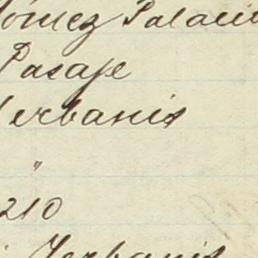 Gómez Palacio
Pasaje
Yerbanis
"
210
Yerbanis